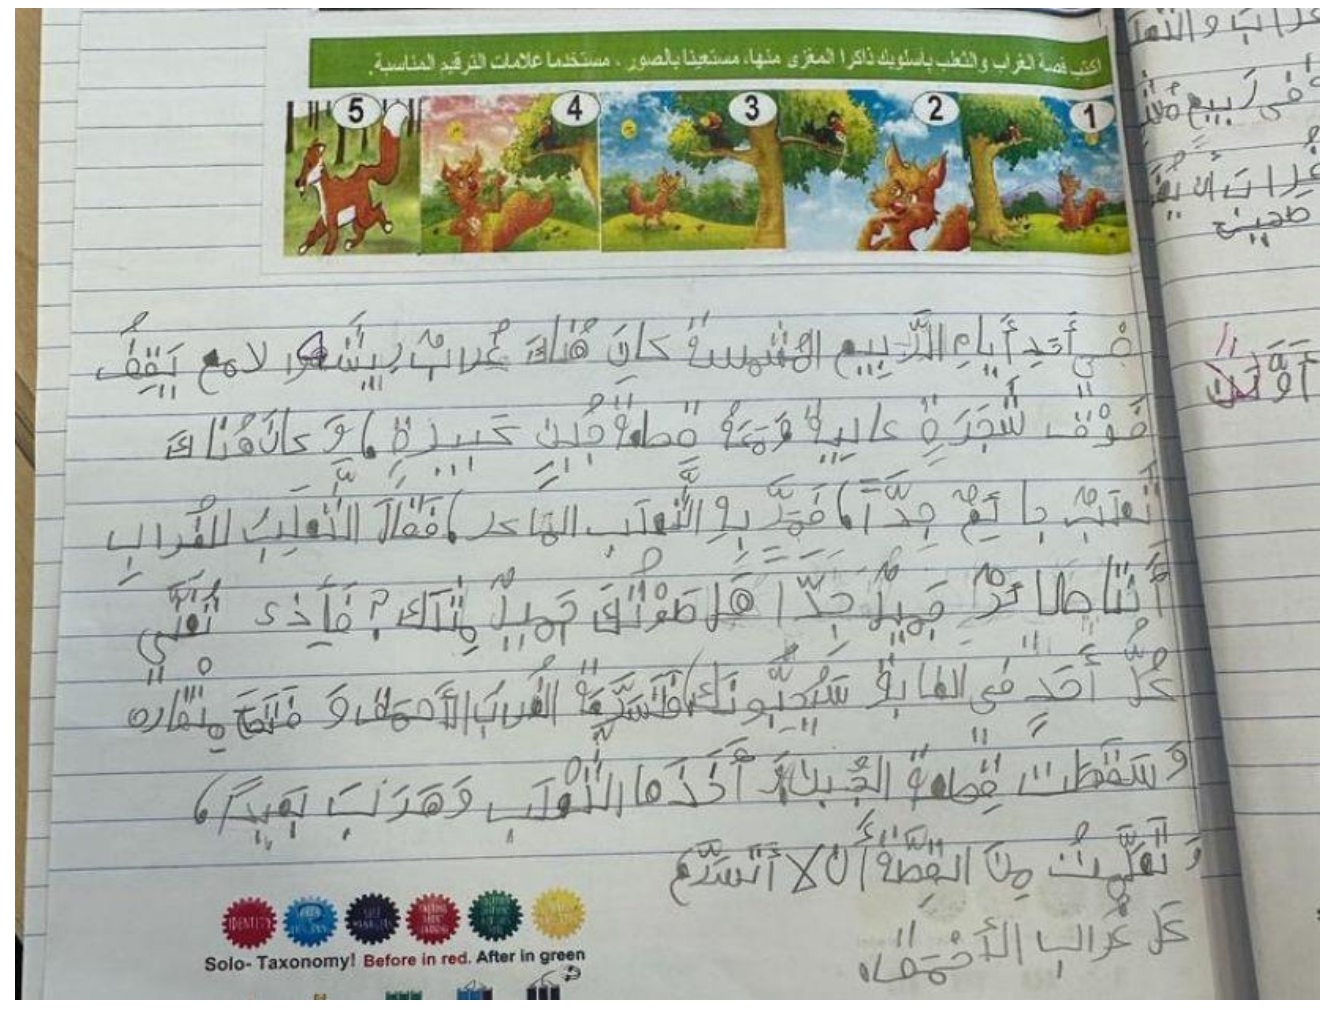 اكتب قصة الغراب والثعلب بأسلوبك ذاكرا المغزى منها، مستعينا بالصور ، مستخدما علامات الترقيم المناسبة.
5 4 3 2 1
في أَحَدِ أَيامِ الرَّبيعِ المشمسة كانَ هُناكَ غُرابٌ لامع يَقِفُ
فَوْقَ شَجَرَةٍ عالية وَمَعَهُ قطعة جُبن كَبيرَة ، وَ كانَ هُناكَ
ثَعلَبٌ جائِعٌ جِدّاً ، فَمَرَّ بِهِ الثَّعلَب الماكر ، فَقالَ الثَّعلَبُ للغُراب
أَنتَ طائرٌ جَميلٌ جِدّاً هَل صَوْتُكَ جَميلٌ مِثلَك ؟ فَإِذى تُغَنّي
كُلُّ أَحَد في الغابة سَيُحِبّونَك ، الغُراب الأَحمَق وَ فَتَحَ مِنقاره
وَ سَقَطَت قِطعة الجُبن أَخَذَها الثَّعلَب وَهَرَبَ بَعيداً ،
وَ تَعَلَّمتُ مِنَ القِصَّة أَن لا أَتَسَرَّع
كَل غُراب الأَحمَق.
IDENTITY
Solo- Taxonomy! Before in red. After in green